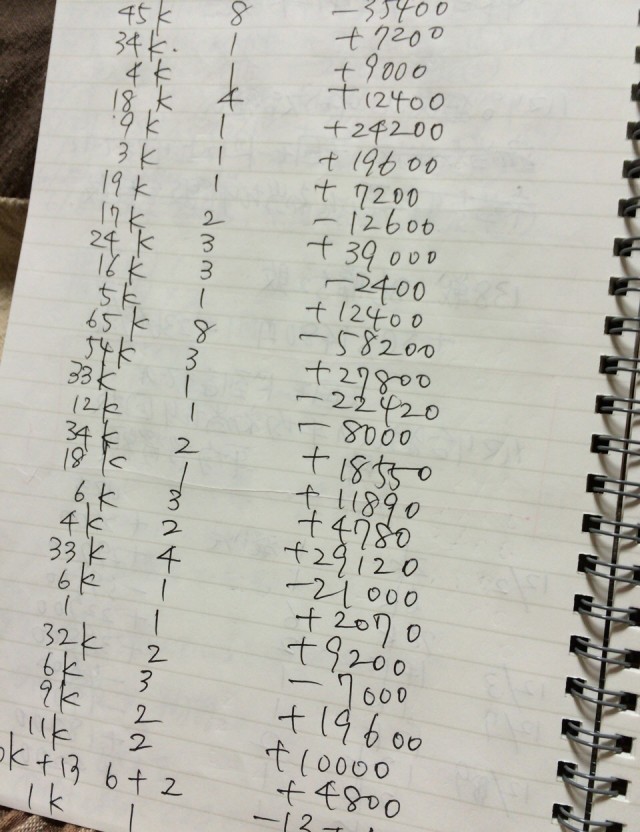 45k 8 −35400
34k. 1 +7200
4k 1 +9000
18k 4 +12400
9k 1 +24200
3k 1 +19600
19k 1 +7200
17k 2 −12600
24k 3 +39000
16k 3 −2400
5k 1 +12400
65k 8 −58200
54k 3 +27800
33k 1 −22420
12k 1 −8000
34k 2 +18550
18k 1 +11890
6k 3 +4780
4k 2 +29120
33k 4 −21000
6k 1 +2070
1 1 +9200
32k 2 −7600
6k 3 +19600
9k 2 +10000
11k 2 +4800
k+13 6+2
1k 1